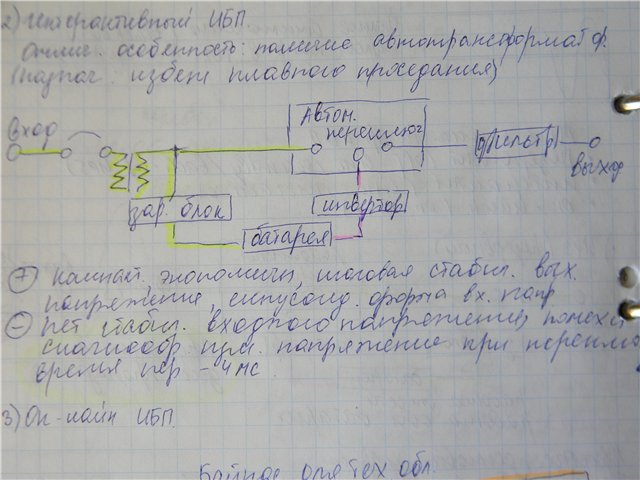 2) Интерактивный ИБП.
Отлич. особенность: наличие автотрансформатор.
(назнач: избеж плавного проседания)
Вход
Автон. переключ
фильтр
выход
зар. блок
инвертор
батарея
+ компакт, экономичн, шаговая стабил. вых.
напряжение, синусоид. форма вх. напр
- нет стабил. входного напряжения, помехи
синусоидор. изм. напряжение при переклю
время пер - 4мс
3) Он-лайн ИБП.
обл.